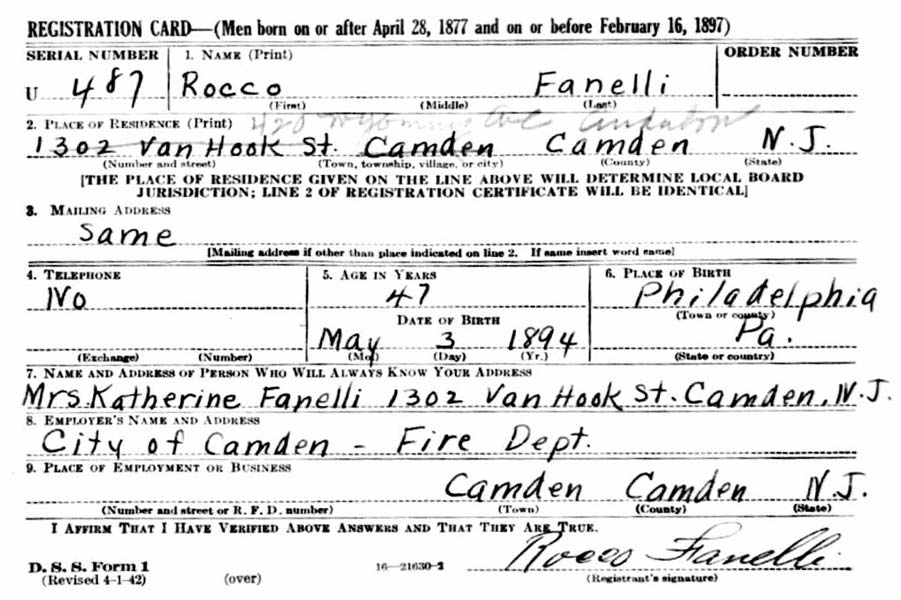 REGISTRATION CARD—(Men born on or after April 28, 1877 and on or before February 16, 1897)
SERIAL NUMBER 1. NAME (Print) ORDER NUMBER
U 487 Rocco Fanelli
(First) (Middle) (Last)
2. PLACE OF RESIDENCE (Print) 420 Wyoming Ave Audubon
1302 Van Hook St. Camden Camden N.J.
(Number and street) (Town, township, village, or city) (County) (State)
[THE PLACE OF RESIDENCE GIVEN ON THE LINE ABOVE WILL DETERMINE LOCAL BOARD
JURISDICTION; LINE 2 OF REGISTRATION CERTIFICATE WILL BE IDENTICAL]
3. MAILING ADDRESS
Same
[Mailing address if other than place indicated on line 2. If same insert word same]
4. TELEPHONE 5. AGE IN YEARS 6. PLACE OF BIRTH
No 47 Philadelphia
DATE OF BIRTH (Town or county)
May 3 1894 Pa.
(Exchange) (Number) (Mo.) (Day) (Yr.) (State or country)
7. NAME AND ADDRESS OF PERSON WHO WILL ALWAYS KNOW YOUR ADDRESS
Mrs. Katherine Fanelli 1302 Van Hook St. Camden, N.J.
8. EMPLOYER'S NAME AND ADDRESS
City of Camden - Fire Dept.
9. PLACE OF EMPLOYMENT OR BUSINESS
Camden Camden N.J.
(Number and street or R. F. D. number) (Town) (County) (State)
I AFFIRM THAT I HAVE VERIFIED ABOVE ANSWERS AND THAT THEY ARE TRUE.
Rocco Fanelli
D. S. S. Form 1
(Revised 4-1-42) (over) 16—21630-2 (Registrant's signature)